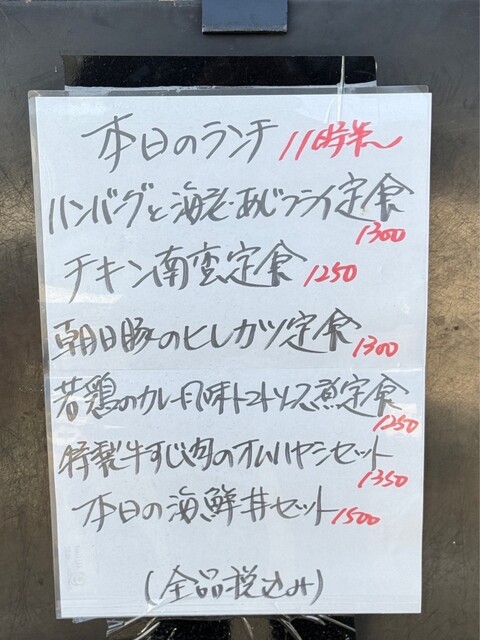 本日のランチ 11時半〜
ハンバーグと海老・あじフライ定食
1300
チキン南蛮定食 1250
朝日豚のヒレカツ定食 1300
若鶏のカレー風味トマトソース煮定食
1250
特製牛すじ肉のオムハヤシセット
1350
本日の海鮮丼セット 1500
(全品税込み)